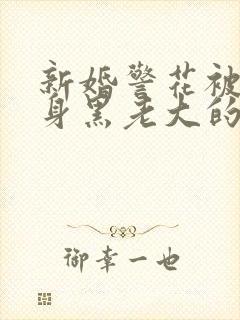 新婚警花被
身黑老大的
御幸一也